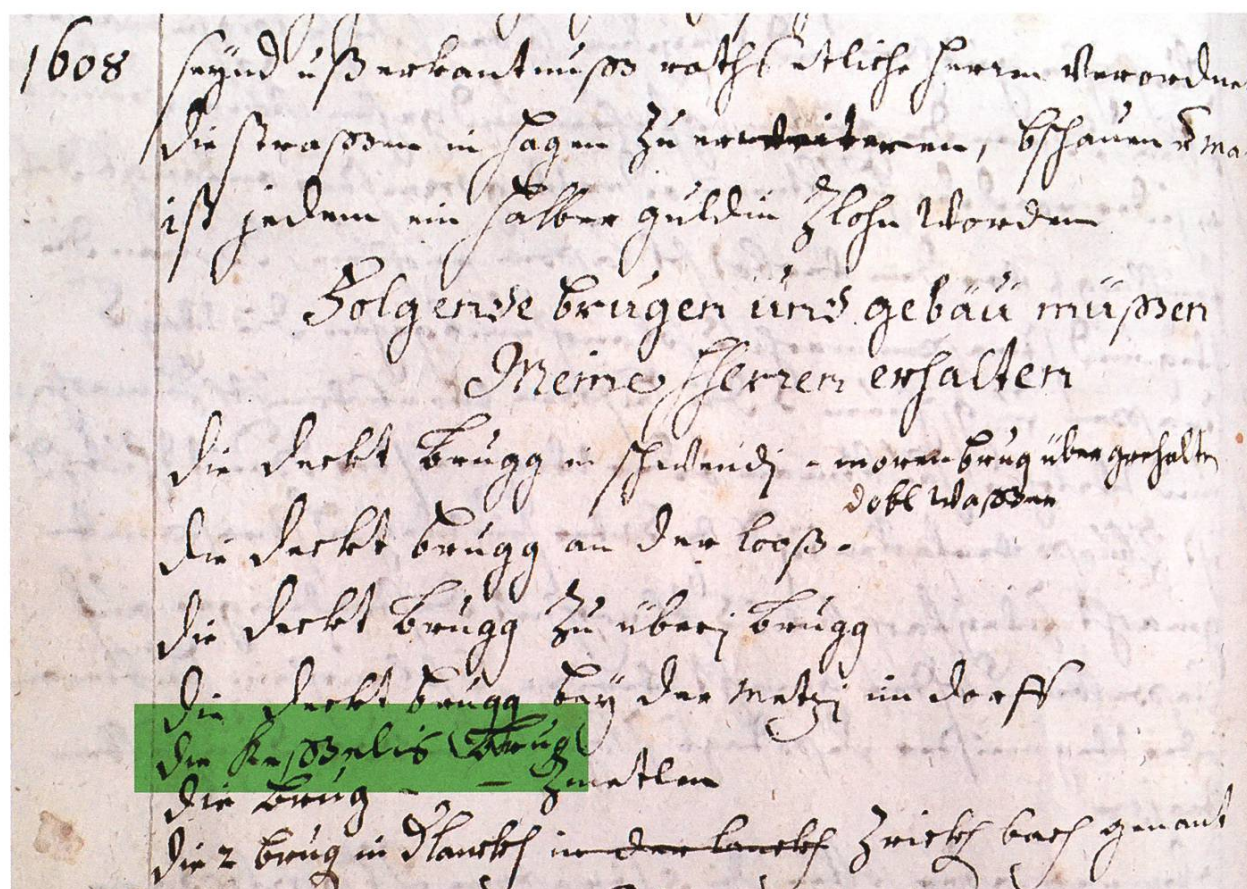 1608 seynd uß erkantnuß raths etliche herren verordne
die straßen in hagen zu erweiteren, bschauen
ist jedem ein halber guldin zlohn worden
Folgende brugen und gebäu müßen
Meine Herren erhalten
die deckt brugg in schwendj - morenbrug über gehalten
dobl waßer
die deckt brugg an der looß.
die deckt brugg zu überj brugg
die deckt brugg bey der metzj im dorff
die keßelis brug
die brug - - zmetlen
die 2 brug in in der zrick bach genant